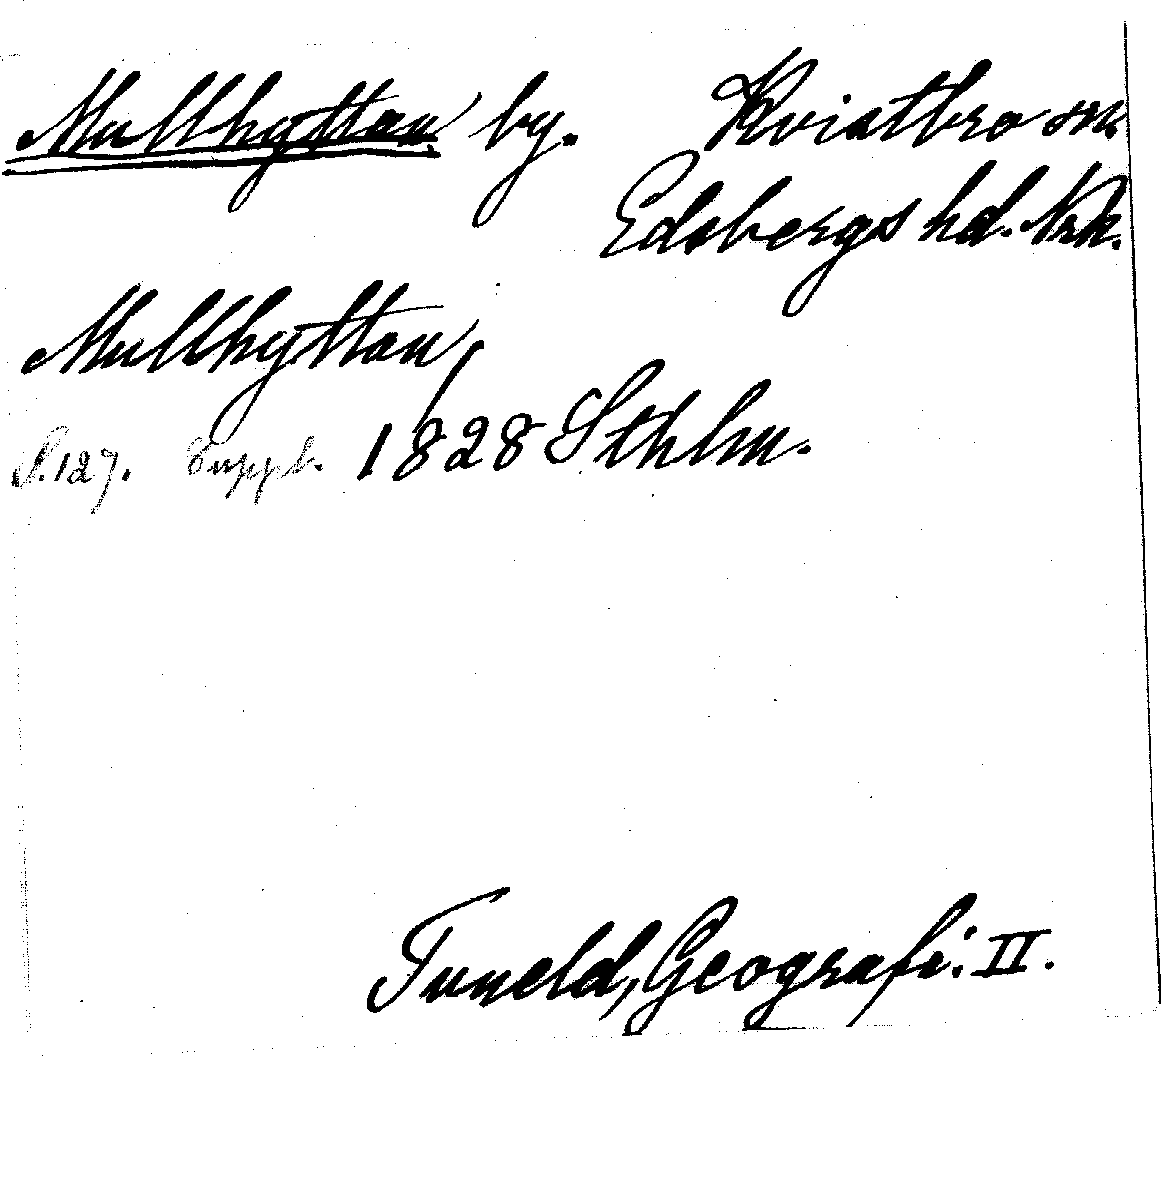 Mullhyttan by. Kvistbro sn.
Edsbergs hd. Nrk.
Mullhyttan,
S. 127. Suppl. 1828 Sthlm.
Tuneld, Geografi. II.